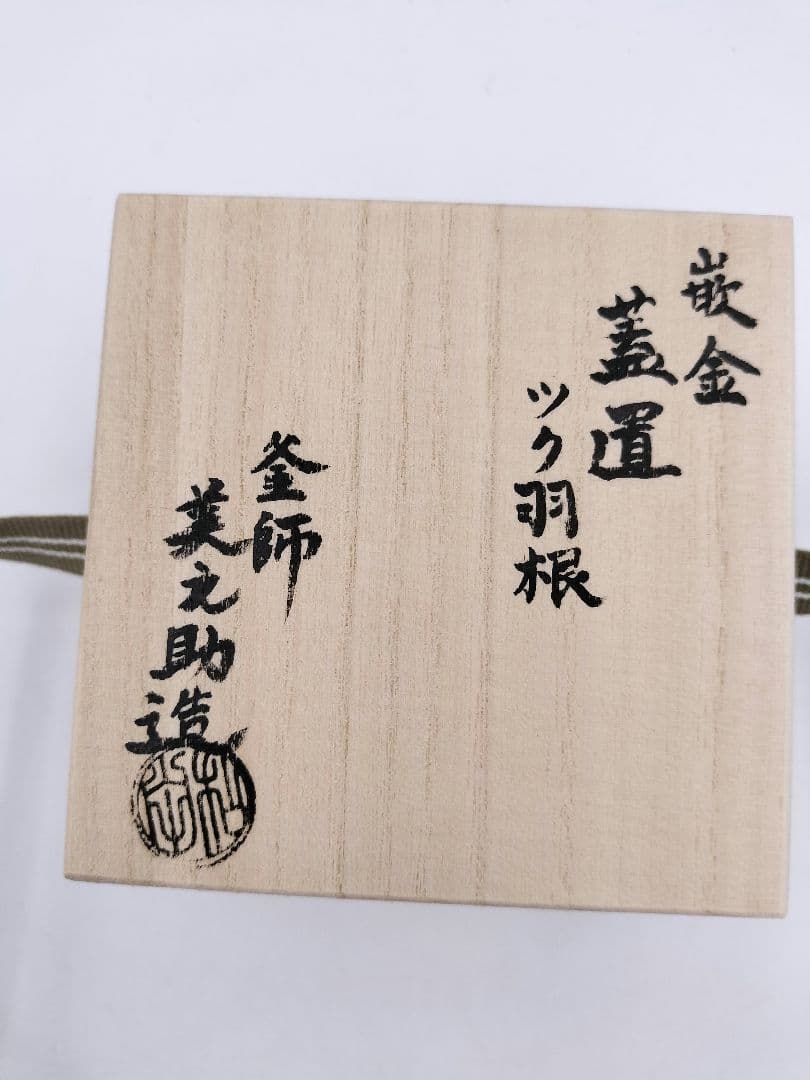 嵌金
蓋置
ツク羽根
釜師
美之助造